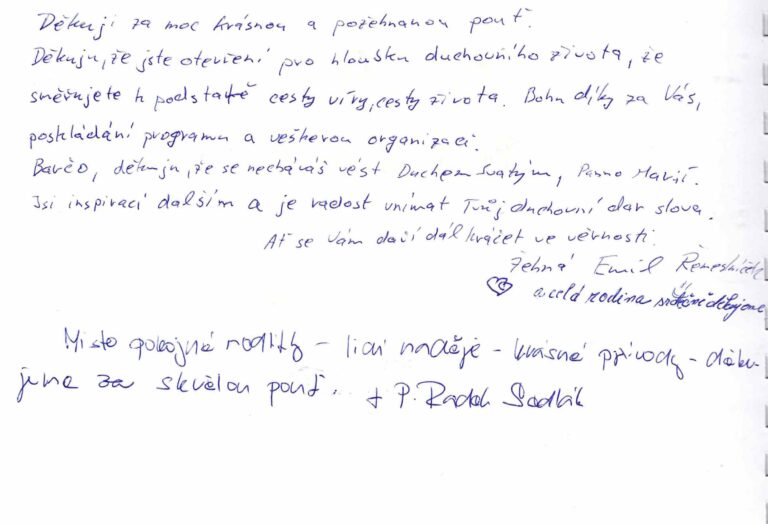 Děkuji za moc krásnou a požehnanou pouť.
Děkuju, že jste otevření pro hloubku duchovního života, že
směřujete k podstatě cesty víry, cesty života. Bohu díky za Vás,
poskládání programu a veškerou organizaci.
Barčo, děkuju, že se necháváš vést Duchem Svatým, Pannou Marií.
Jsi inspirací dalším a je radost vnímat Tvůj duchovní dar slova.
Ať se Vám daří dál kráčet ve věrnosti.
Žehná Emil
a celá rodina srdečně děkujeme
Místo pokojné modlitby - lidí naděje - krásné přírody - děku-
jeme za skvělou pouť. + P. Radek Sedlák